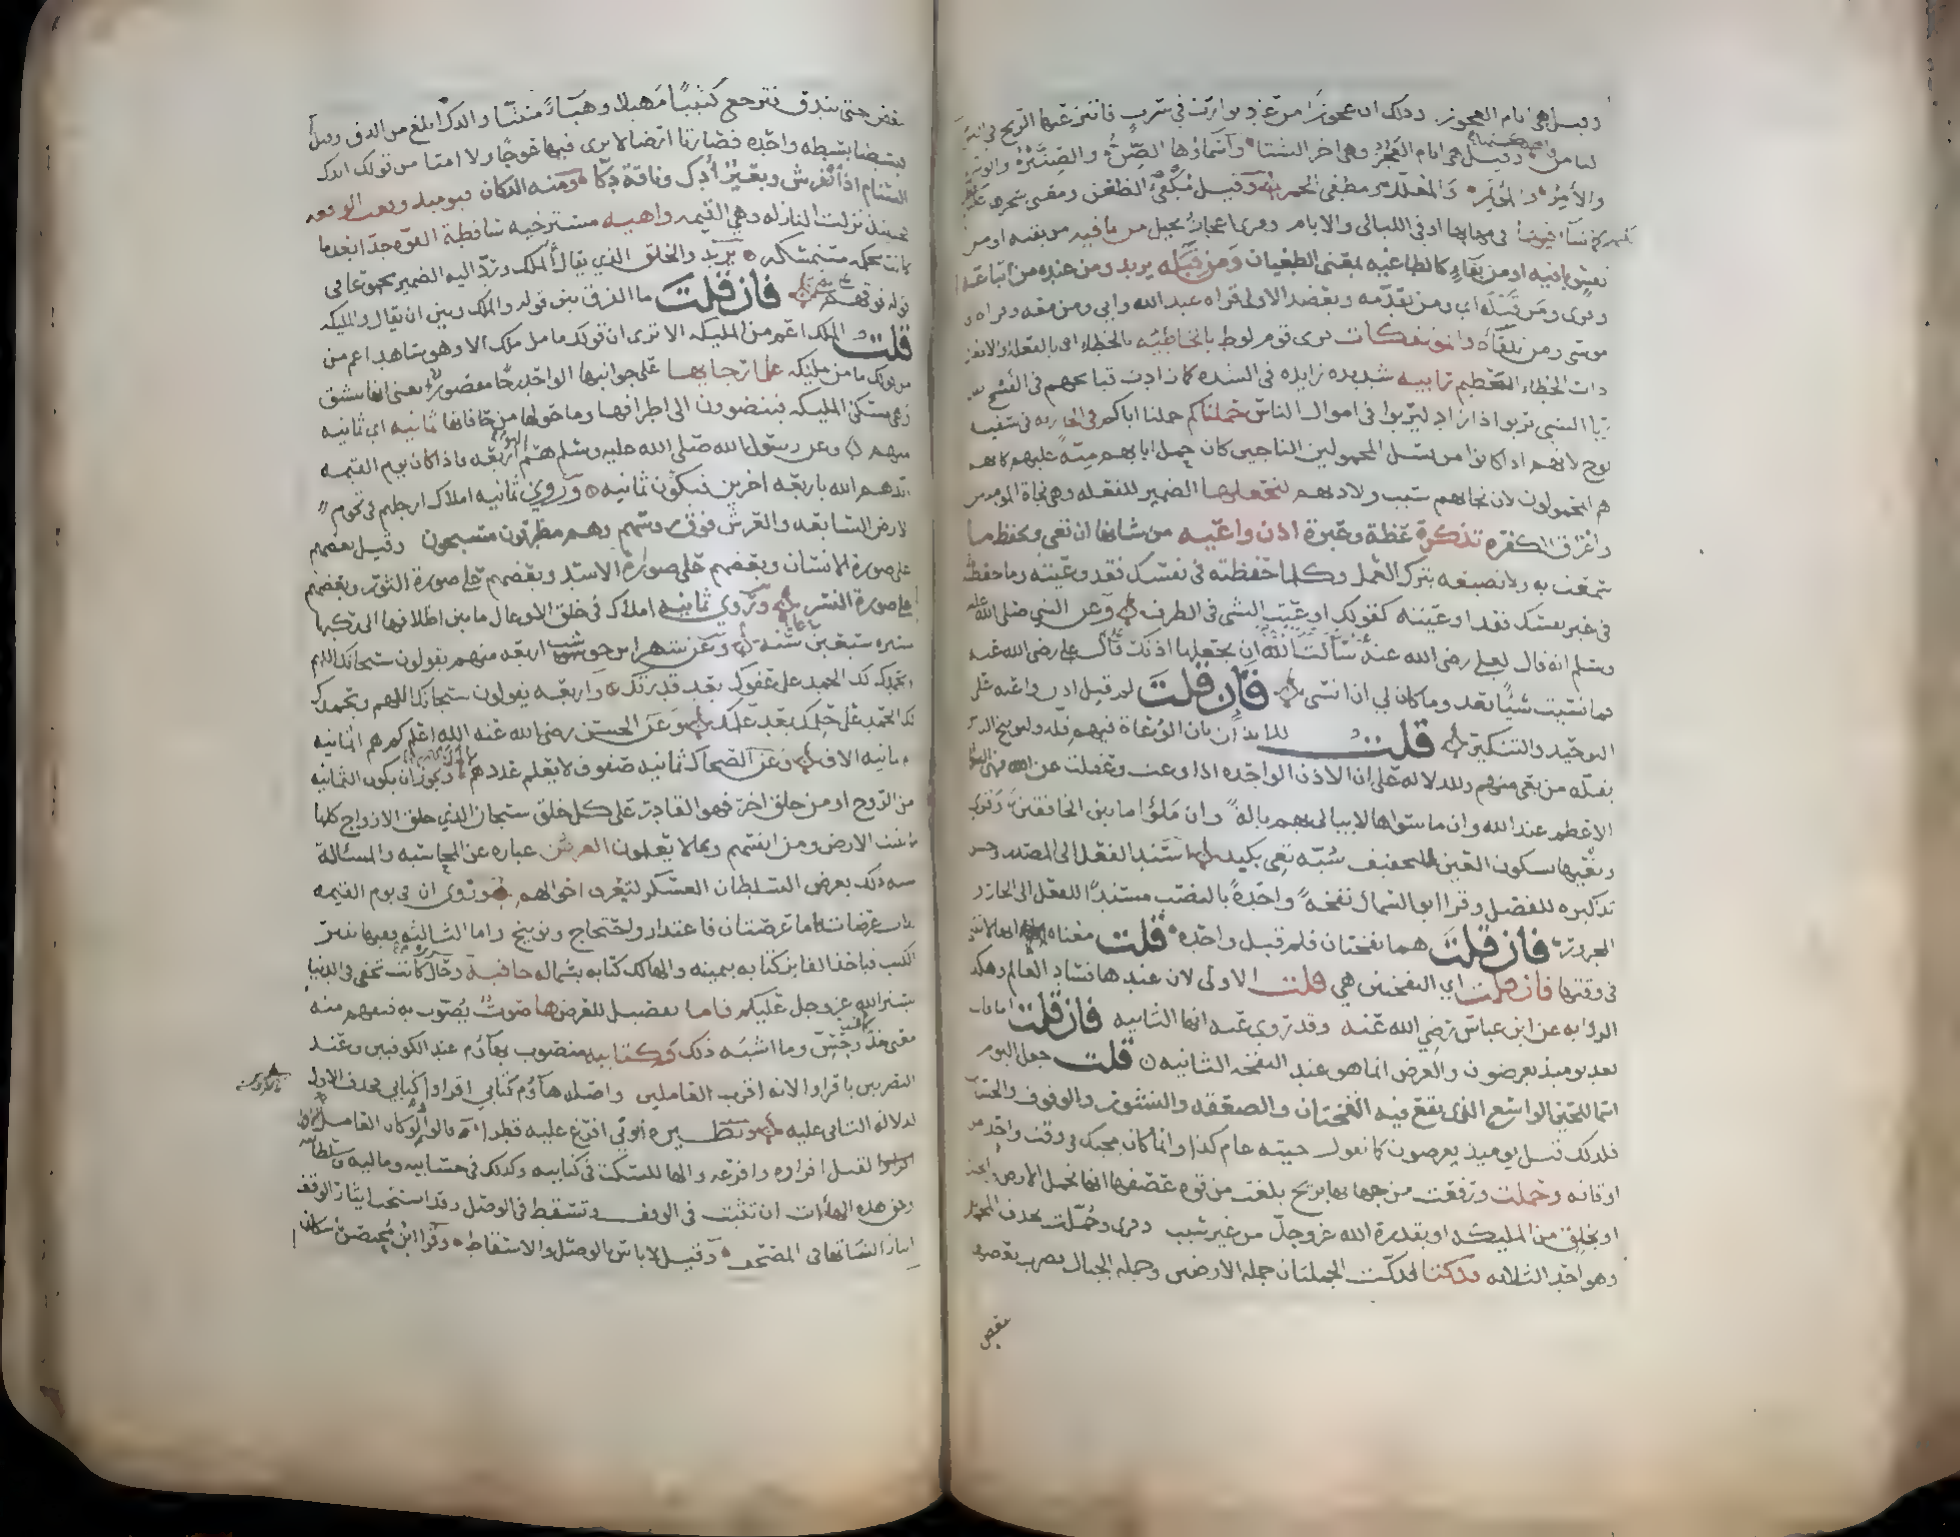 وقيل هي ايام العجوز وذلك ان عجوزا من عاد توارت في سرب فانتزعتها الريح في اليوم
الثامن وقيل هي ايام العجز وهي اخر الشتا واسماؤها الصن والصنبر والوبر
والآمر والمؤتمر والمعلل ومطفئ الجمر وقيل مكفئ الظعن ومعنى سخرها عليهم
فيها في مهابها او في الليالي والايام وقرئ اعجاز نخيل من باقيه من بقيه او من
نفس باقيه او من بقاء كالطاغيه بمعنى الطغيان ومن قبله يريد ومن عنده من اتباعه
وقرئ ومن قبله اي ومن تقدمه ويعضد الاولى قراه عبد الله وابي ومن معه وقراه
موسى ومن تلقاه والموتفكات قرى قوم لوط بالخاطئه بالخطاء او بالفعله او الافعال
ذات الخطاء العظيم رابيه شديده زايده في الشده كما زادت قبايحهم في القبح
ربا الشي يربو اذا زاد ليربوا في اموال الناس حملناكم حملنا اباكم في الجاريه في سفينه
نوح لانهم اذا كانوا من نسل المحمولين الناجين كان حمل ابايهم منة عليهم كانهم
هم المحمولون لان نجاتهم سبب ولادتهم لنجعلها الضمير للفعله وهي نجاة المومنين
واغراق الكفره تذكرة عظة وعبرة اذن واعيه من شانها ان تعي وتحفظ ما
سمعت به ولا تضيعه بترك العمل وكلما حفظته في نفسك فقد وعيته وما حفظته
في غير نفسك فقد اوعيته كقولك اوعيت الشي في الظرف وعن النبي صلى الله عليه
وسلم انه قال لعلي رضي الله عنه سألت الله ان يجعلها اذنك قال علي رضي الله عنه
فما نسيت شيئا بعد وما كان لي ان انسى فان قلت لم قيل اذن واعيه على
التوحيد والتنكير قلت للايذان بان الوعاة فيهم قله ولتوبيخ الناس
بقله من يعي منهم وللدلاله على ان الاذن الواحده اذا وعت وعقلت عن الله فهي السواد
الاعظم عند الله وان ما سواها لا يبالى بهم بالة وان ملؤا ما بين الخافقين وقرئ
وتعيها بسكون العين للتخفيف شبه تعي بكبد اسند الفعل الى المصدر وحسن
تذكيره للفصل وقرا ابو السمال نفخة واحدة بالنصب مسندا للفعل الى الجار و
المجرور فان قلت هما نفختان فلم قيل واحده قلت معناه انها لا تثنى
في وقتها فان قلت اي النفختين هي قلت الاولى لان عندها فساد العالم وهكذا
الروايه عن ابن عباس رضي الله عنه وقد روي عنه انها الثانيه فان قلت اما قال
بعد يوميذ تعرضون والعرض انما هو عند النفخه الثانيه قلت جعل اليوم
اسما للحين الواسع الذي يقع فيه النفختان والصعقه والنشور والوقوف والحساب
فلذلك قيل يوميذ يعرضون كما تقول جيته عام كذا وانما كان مجيك في وقت واحد من
اوقاته وحملت ورفعت من جهاتها بريح بلغت من قوه عصفها انها تحمل الارض والجبال
او بخلق من المليكه او بقدرة الله عز وجل من غير سبب وقرئ وحملت بحذف المحمل
وهو احد الثلاثه فدكتا فدكت الجملتان جمله الارضين وجمله الجبال فضرب بعضها
ببعض
ببعض حتى تندق وترجع كثيبا مهيلا وهباء منبثا والدك ابلغ من الدق وقيل
فبسطتا بسطه واحده فصارتا ارضا لا ترى فيها عوجا ولا امتا من قولك اندك
السنام اذا انفرش وبعير أدك وناقة دكا ومنه الدكان فيوميذ وقعت الواقعه
فحينئذ نزلت النازله وهي القيمه واهيه مسترخيه ساقطة القوه جدا بعد ما
كانت محكمه مستمسكه يريد والخلق الذي يقال له الملك ورد اليه الضمير مجموعا في
قوله فوقهم فان قلت ما الفرق بين قوله والملك وبين ان يقال والمليكه
قلت الملك اعم من المليكه الا ترى ان قولك ما من ملك الا وهو شاهد اعم من
قولك ما من مليكه على ارجايها على جوانبها الواحد رجا مقصور يعني انها تنشق
وهي مسكن المليكه فينضوون الى اطرافها وما حولها من حافاتها ثمانيه اي ثمانيه
منهم وعن رسول الله صلى الله عليه وسلم هم اليوم اربعه فاذا كان يوم القيمه
ايدهم الله باربعه اخرين فيكون ثمانيه وروي ثمانيه املاك ارجلهم في تخوم
الارض السابعه والعرش فوق رءوسهم وهم مطرقون مسبحون وقيل بعضهم
على صورة الانسان وبعضهم على صورة الاسد وبعضهم على صورة الثور وبعضهم
على صورة النسر وروي ثمانيه املاك في خلق الاوعال ما بين اظلافها الى ركبها
مسيره سبعين عاما وعن شهر ابن حوشب اربعه منهم يقولون سبحانك اللهم
وبحمدك لك الحمد على عفوك بعد قدرتك واربعه يقولون سبحانك اللهم وبحمدك
لك الحمد على حلمك بعد علمك وعن الحسن رضي الله عنه الله اعلم كم هم اثمانيه
ام ثمانيه الاف وعن الضحاك ثمانيه صفوف لا يعلم عددهم الا الله ويجوز ان يكون الثمانيه
من الروح او من خلق اخر فهو القادر على كل خلق سبحان الذي خلق الازواج كلها
مما تنبت الارض ومن انفسهم ومما لا يعلمون العرض عباره عن المحاسبه والمسائلة
شبه ذلك بعرض السلطان العسكر لتعرف احوالهم وروي ان في يوم القيمه
ثلاث عرضات فاما عرضتان فاعتذار واحتجاج وتوبيخ واما الثالثه ففيها تنشر
الكتب فياخذ الفايز كتابه بيمينه والهالك كتابه بشماله خافية وحال كانت تخفى في الدنيا
بستر الله عز وجل عليكم فاما تفصيل للعرض ها صوت يصوت به فيفهم منه
معنى خذ وحس وما اشبه ذلك وكتابيه منصوب بهاؤم عند الكوفيين وعند
البصريين باقراوا لانه اقرب العاملين واصله هاؤم كتابي اقراوا كتابي فحذف الاول
لدلاله الثاني عليه ونظيره آتوني افرغ عليه قطرا قالوا ولو كان العامل الاول
لقيل اقراوه وافرغه والها للسكت في كتابيه وكذلك في حسابيه وماليه وسلطانيه
وحق هذه الهاات ان تثبت في الوقف وتسقط في الوصل وقد استحب ايثار الوقف
ايثارا لثباتها في المصحف وقيل لا باس بالوصل والاسقاط وقرا ابن محيصن باسكان